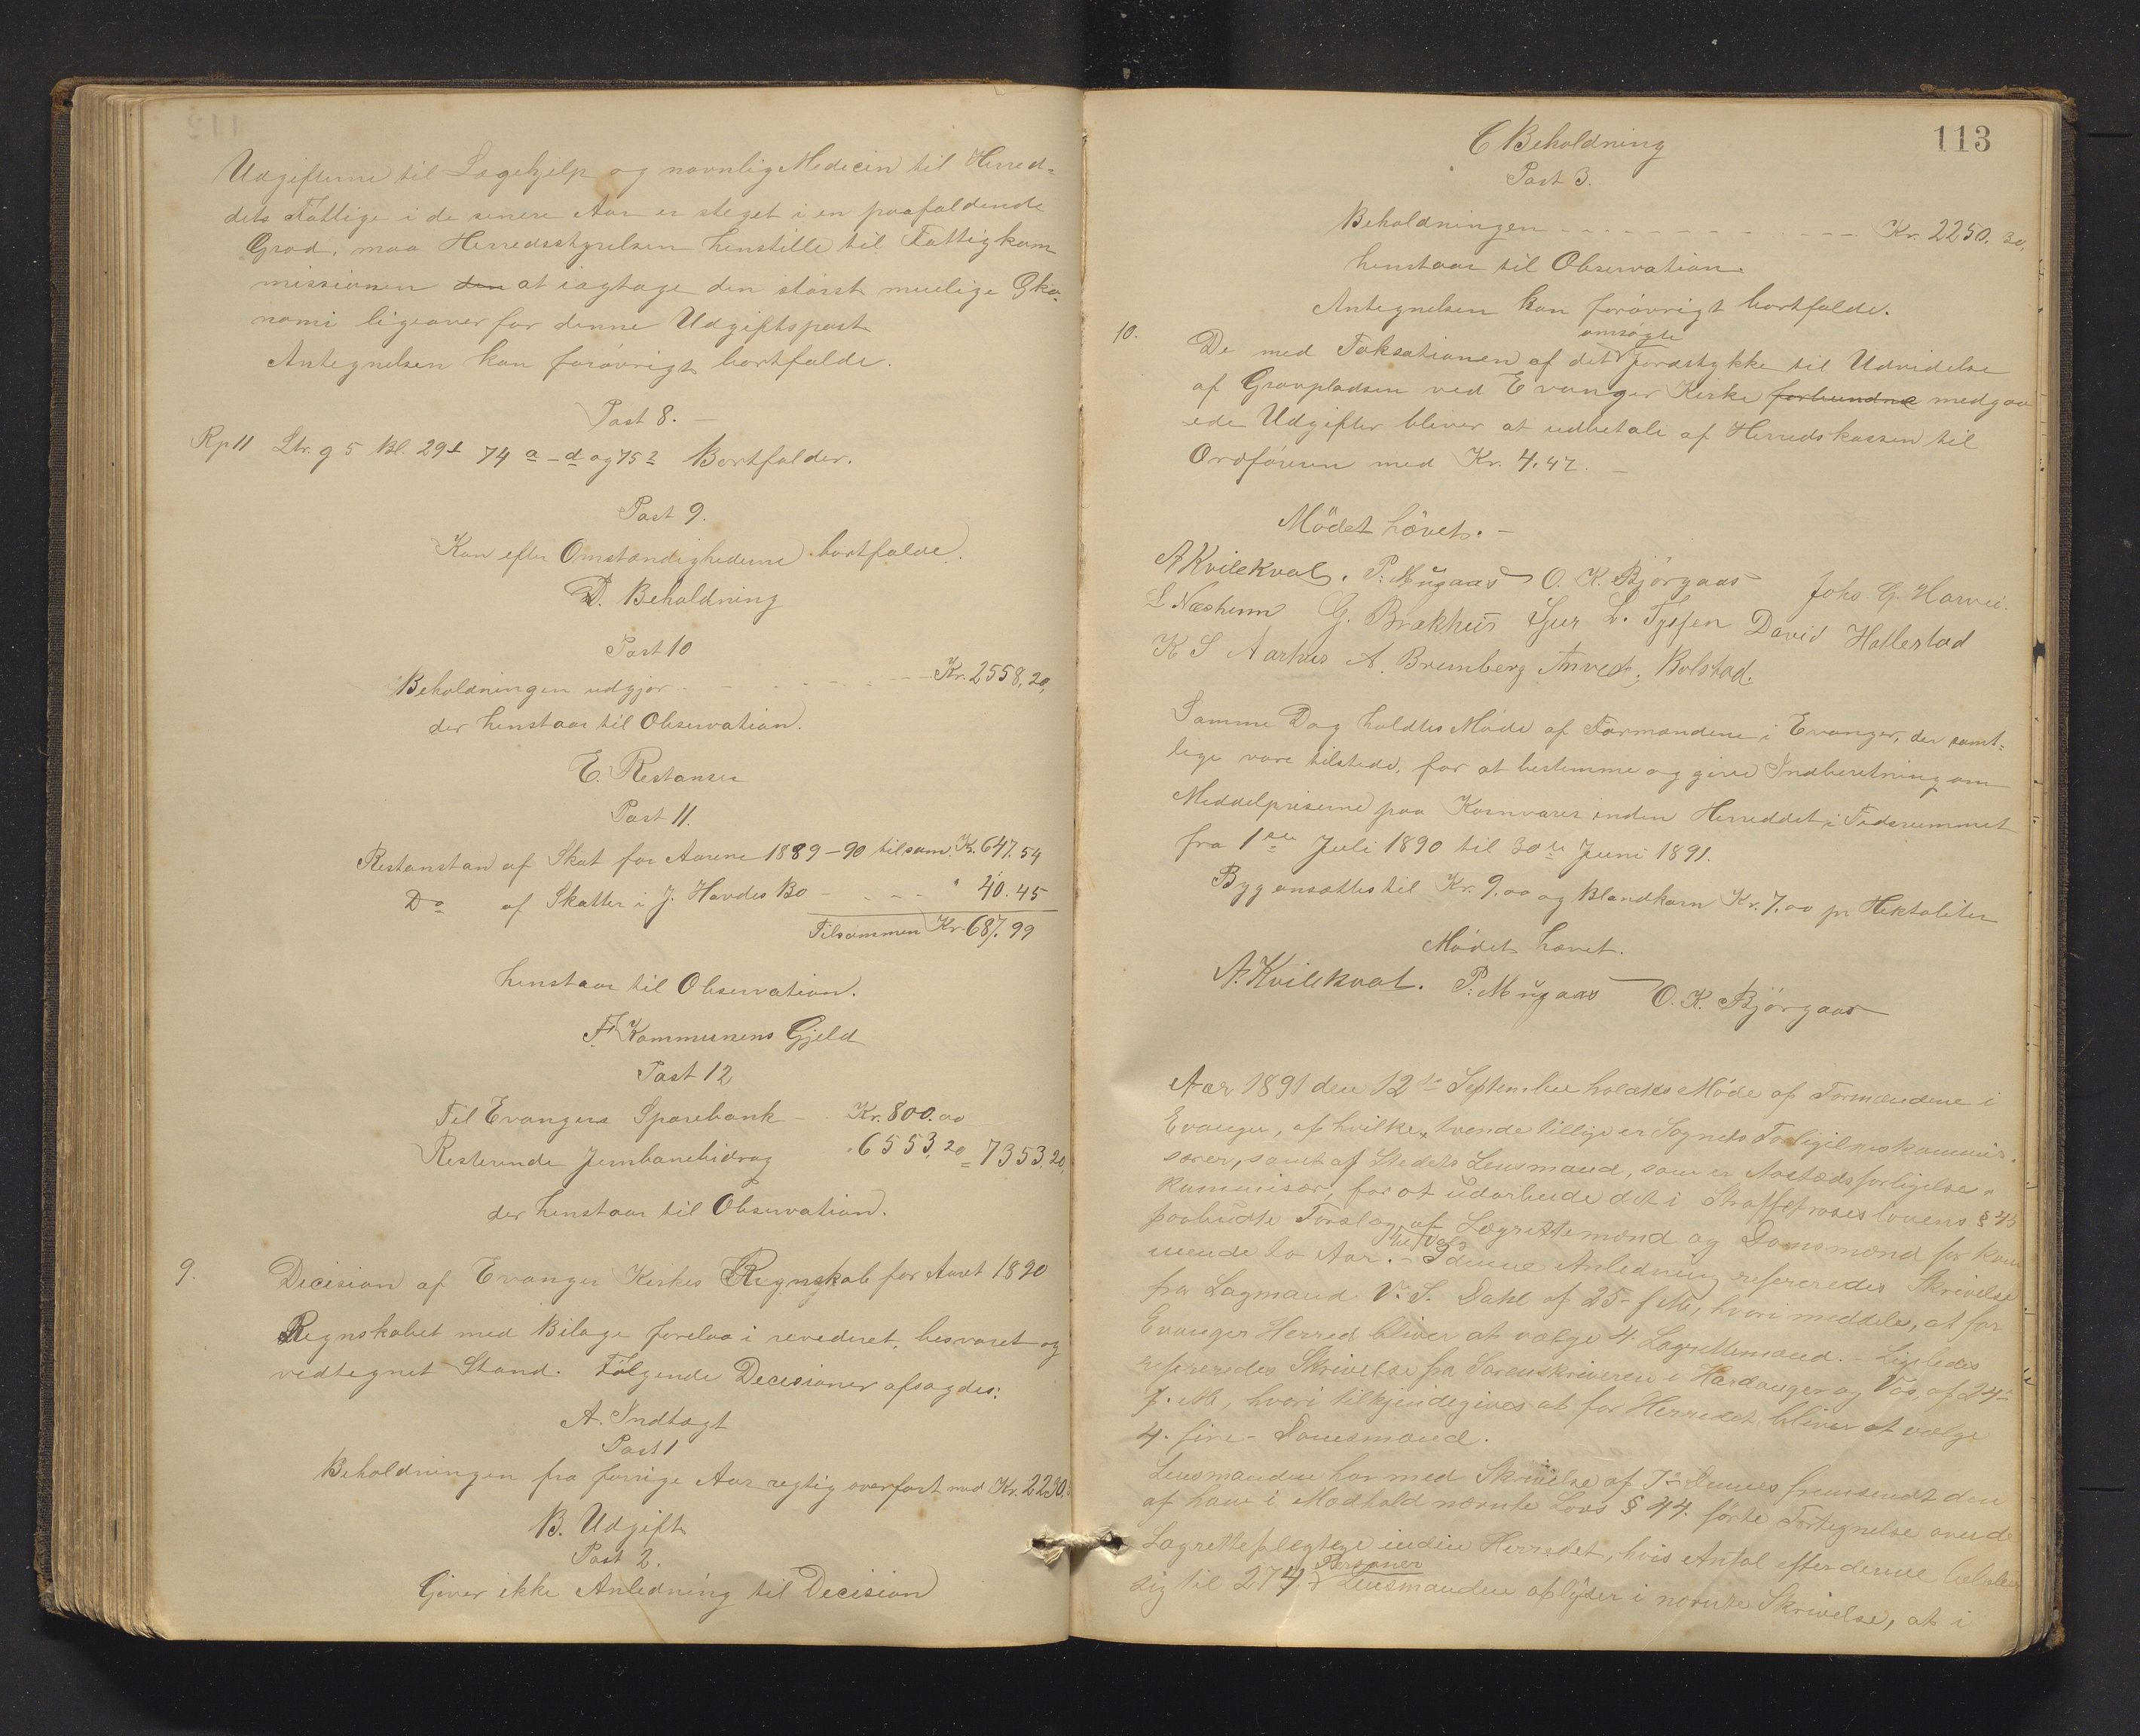 Udgifterne til Lægehjelp og navnlig Medicin til Herred-
dets Fattige i de senere Aar er steget i en paafaldende
Grad, maa Herredsstyrelsen henstille til Fattigkom
missionen den at iagtage den störst muelige Öko-
nomi ligeoverfor denne Udgiftspost.
Antegnelsen kan forövrigt bortfalde.
Post 8. —
Rp 11 Ltr. g 5 Bl. 29 74 a-d og 75 Bortfalder.
Post 9.
Kan efter Omstændighederne bortfalde.
D. Beholdning
Post 10
Beholdningen udgjör - - - - - - - Kr. 2558,20,
der henstaar til Observation.
E. Restanser
Post 11.
Restanstan af Skat for Aarene 1889-90 tilsam. Kr. 647.54
Do af Skatter i J. Havdes Bo - - - - " 40.45
Tilsammen Kr. 687.99
henstaar til Observation.
F. Kommunens Gjeld
Post 12
Til Evangers Sparebank - - Kr. 800.00
Resterende Jernbanebidrag " 6553,20 = 7353.20,
der henstaar til Observation.
9. Decision af Evanger Kirkes Regnskab for Aaret 1890
Regnskabet med Bilage forelaa i revederet, besvaret og
vedtegnet Stand. Fölgende Decisioner afsagdes:
A. Indtægt
Post 1
Beholdningen fra forrige Aar regtig overfört med Kr. 2230.
B. Udgift
Post 2.
Giver ikke Anledning til Decision
113
C Beholdning
Post 3.
Beholdningen - - - - - - - - - - Kr. 2250.30.
henstaar til Observation.
Antegnelsen kan forövrigt bortfalde.
omsögte
10. De med Taksationen af det Jordstykke til Udvidelse
af Gravpladsen ved Evanger Kirke forbundne medgaa
ede Udgifter bliver at udbetale af Herredskassen til
Ordföreren med Kr. 4.47. —
Mödet hævet. —
A Kvilekval. P. Mügaas O. K. Bjørgaas Johs G. Horvei.
L Næsheim G. Brækhus Sjur L. Tyssen David Hallestad
K S Aarhus A. Bremberg Anved. Bolstad.
Samme Dag holdtes Möde af Formændene i Evanger, der samt-
lige vare tilstede, for at bestemme og give Indberetning om
Middelpriserne paa Kornvarer inden Herreddet i Tidsrummet
fra 1ste Juli 1890 til 30te Juni 1891.
Byg ansættes til Kr. 9.00 og Blandkorn Kr. 7.00 pr Hektoliter
Mödet hævet.
A. Kvilekval. P. Mügaas O. K. Bjørgaas
Aar 1891 den 12te September holdtes Möde af Formændene i
Evanger, af hvilke tvende tillige er Sognets Forligelseskommis-
særer, samt af Stedets Lensmand, som er Aastedsforligelses-
kommisær, for at udarbeide det i Straffeproceslovens § 43
paabudte Forslag af Lægrettemænd og Domsmænd for kom
til Valg
mende to Aar. - I denne Anledning refereredes Skrivelse
fra Lagmand V. S. Dahl af 25- f.M, hvori meddeles, at for
Evanger Herred bliver at vælge 4 Lagrettemænd. - Ligeledes
refereredes Skrivelse fra Sorenskriveren i Hardanger og Vos, af 24-
f. M, hvori tilkjendegives at for Herredet bliver at vælge
4. fire - Domsmænd.
Lensmanden har med Skrivelse af 7- dennes fremsendt den
af ham i Medhold nævnte Lovs § 44. förte Fortegnelse over de
Lagretteplegtige inden Herredet, hvis Antal efter denne beløber
Personer
sig til 274. Lensmanden oplyser i nævnte Skrivelse, at i